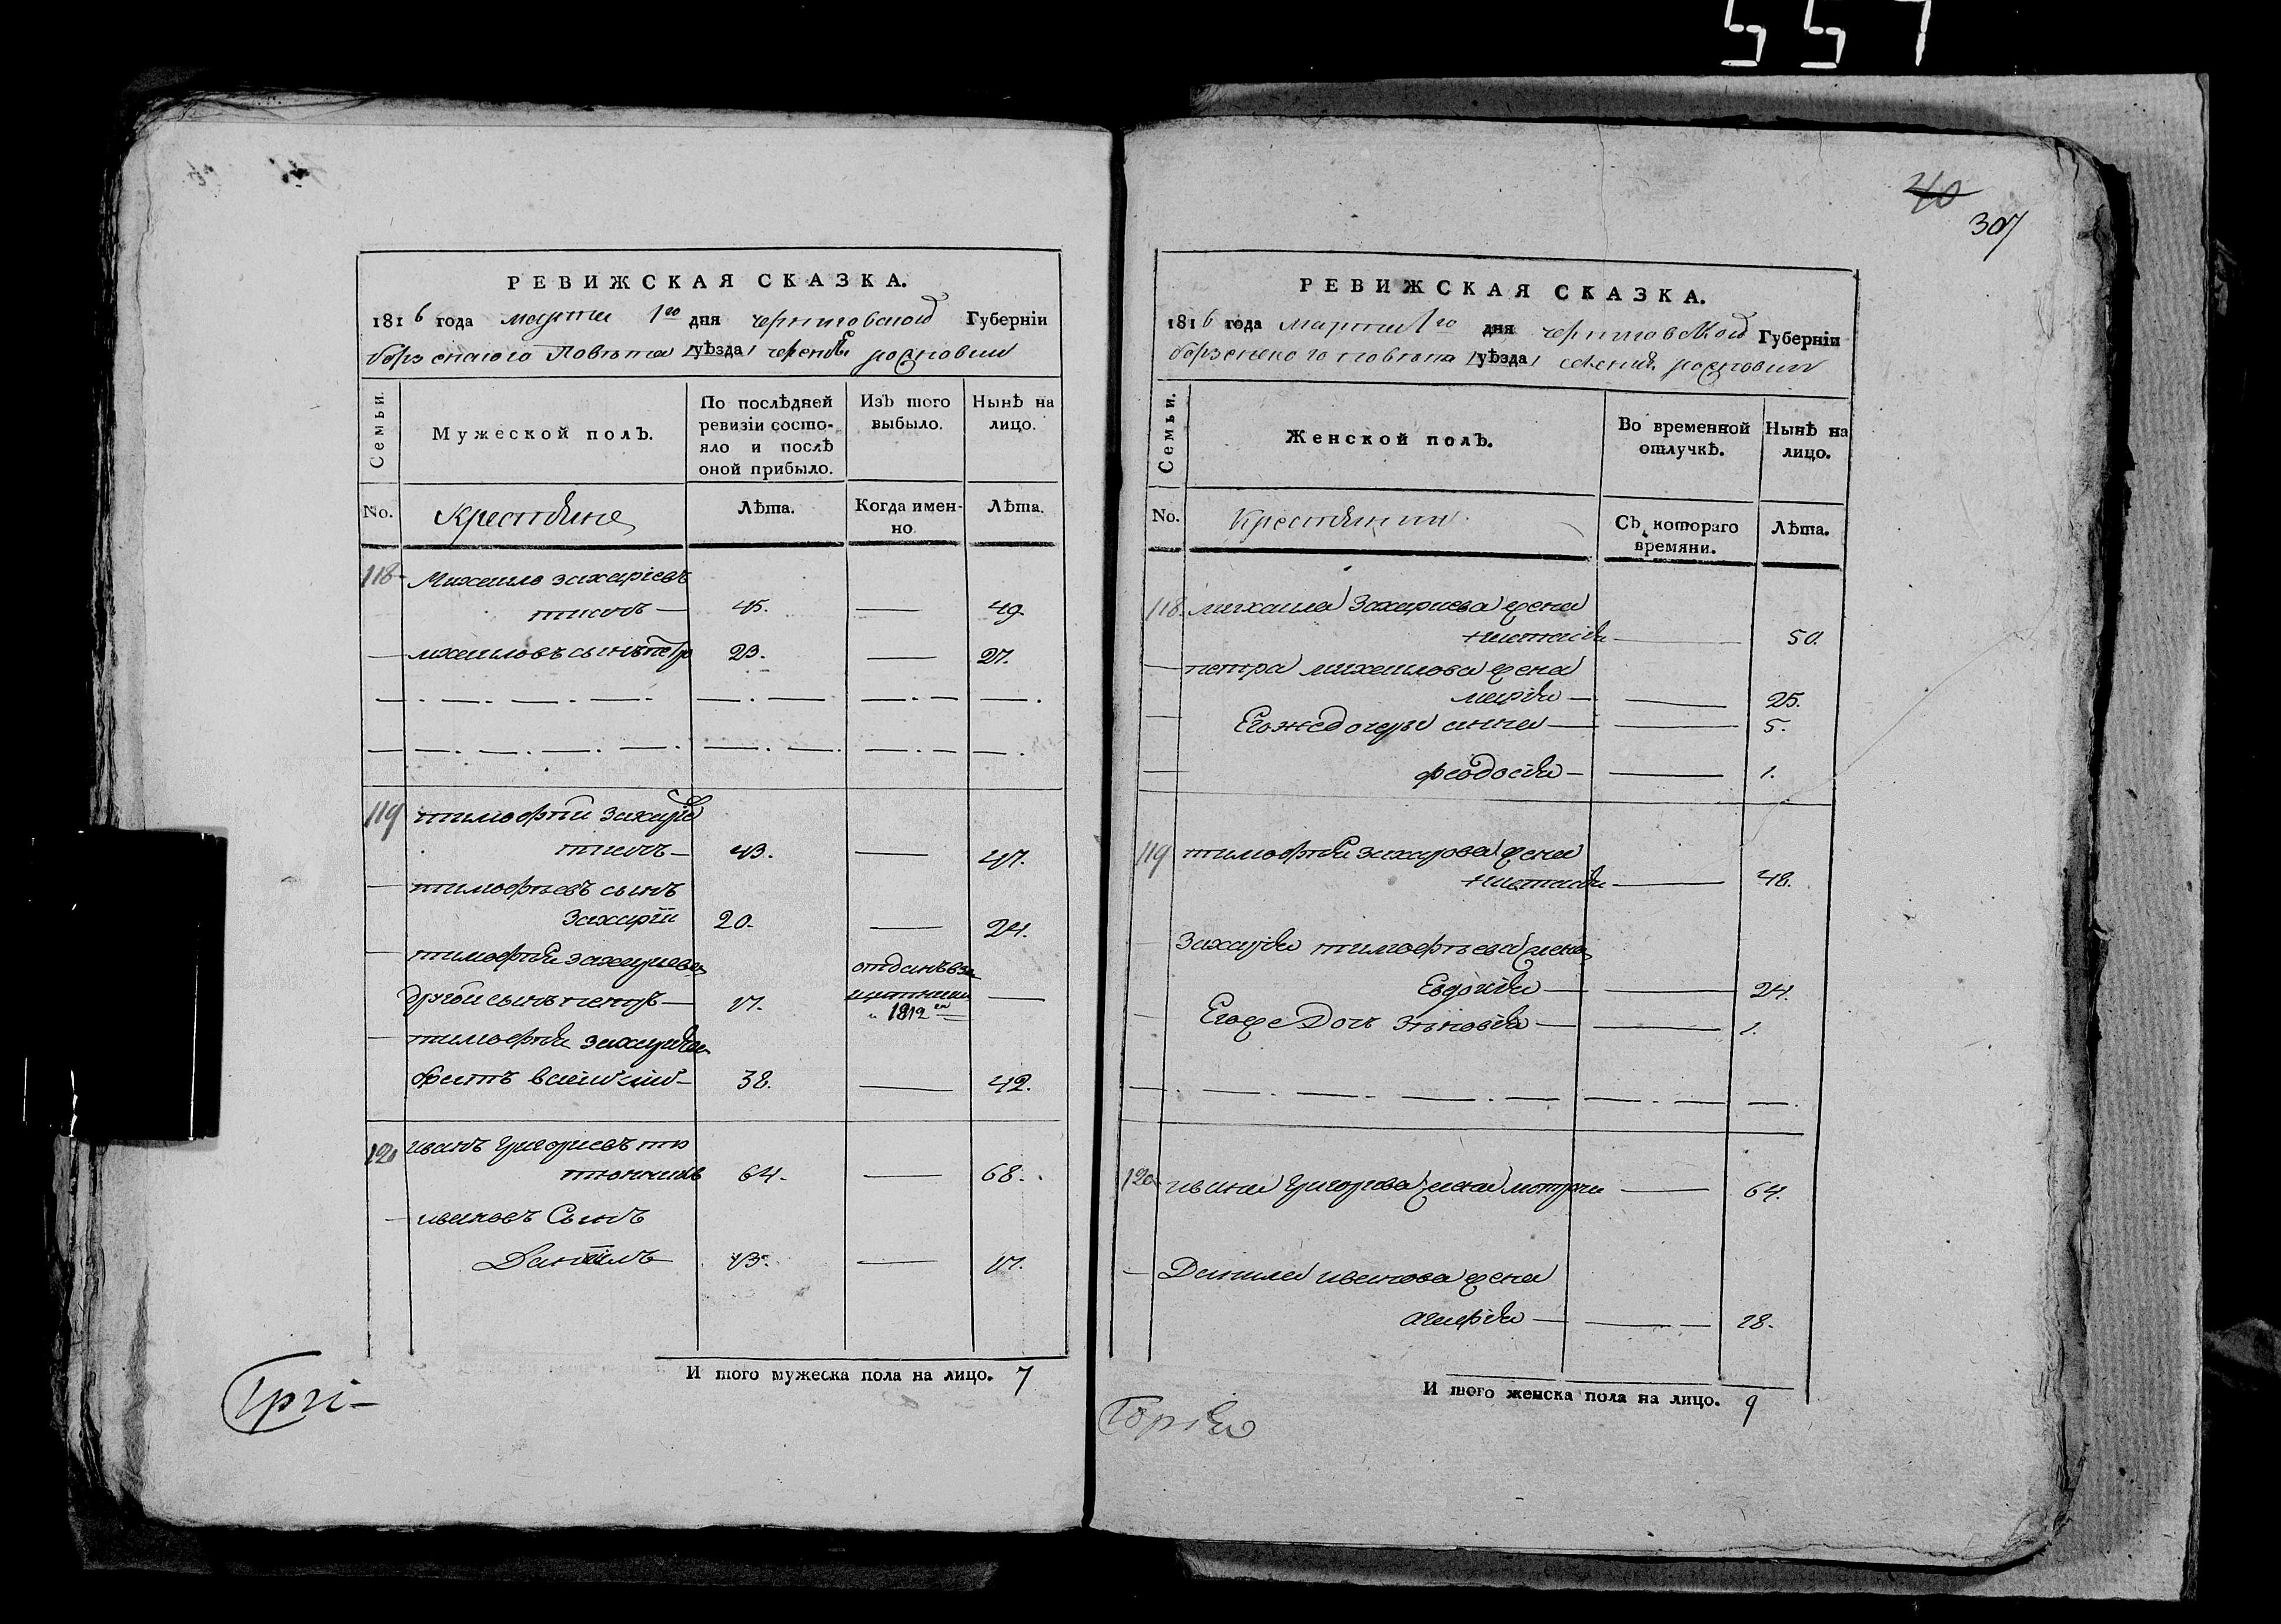 557
РЕВИЖСКАЯ СКАЗКА.
1816 года марта 1го дня черниговской Губернiи
борзенского повета уѣзда
Семьи.
Мужеской полъ.
По послѣдней ревизiи состо-
яло и послѣ
оной прибыло.
Изъ того
выбыло.
Нынѣ на
лицо.
No.
Крестьяне
Лѣта.
Когда имен-
но.
Лѣта.
118 Михаило захарiевъ
45. 49.
михаиловъ сынъ петр 23. 27.
119 тимофей
43. 47.
тимофеевъ сынъ
Захарiй 20. 24.
тимофея захариева отданъ
другой сынъ 17.
1812
тимофея захариева
братъ василий 38. 42.
120 иванъ григориевъ
64. 68.
ивановъ Сынъ
Данiилъ 13. 17.
И того мужеска пола на лицо. 7
40
307
РЕВИЖСКАЯ СКАЗКА.
1816 года марта 1го дня черниговской Губернiи
борзенского повета уѣзда селения
Семьи.
Женской полъ.
Во временной
отлучкѣ.
Нынѣ на
лицо.
No.
Съ котораго
времяни.
Лѣта.
118. михаила Захариева жена
настасiя 50.
петра михаилова жена
марiя 25.
Егожедочери анна 5.
феодосiя 1.
119 тимофея захарова жена
настасiя 48.
Захарiя тимофеева жена
Евдокiя 24.
Егоже Дочь зеновiя 1.
120 ивана григорова жена мотрона 64.
Данила иванова жена
агафiя 18.
И того женска пола на лицо. 9